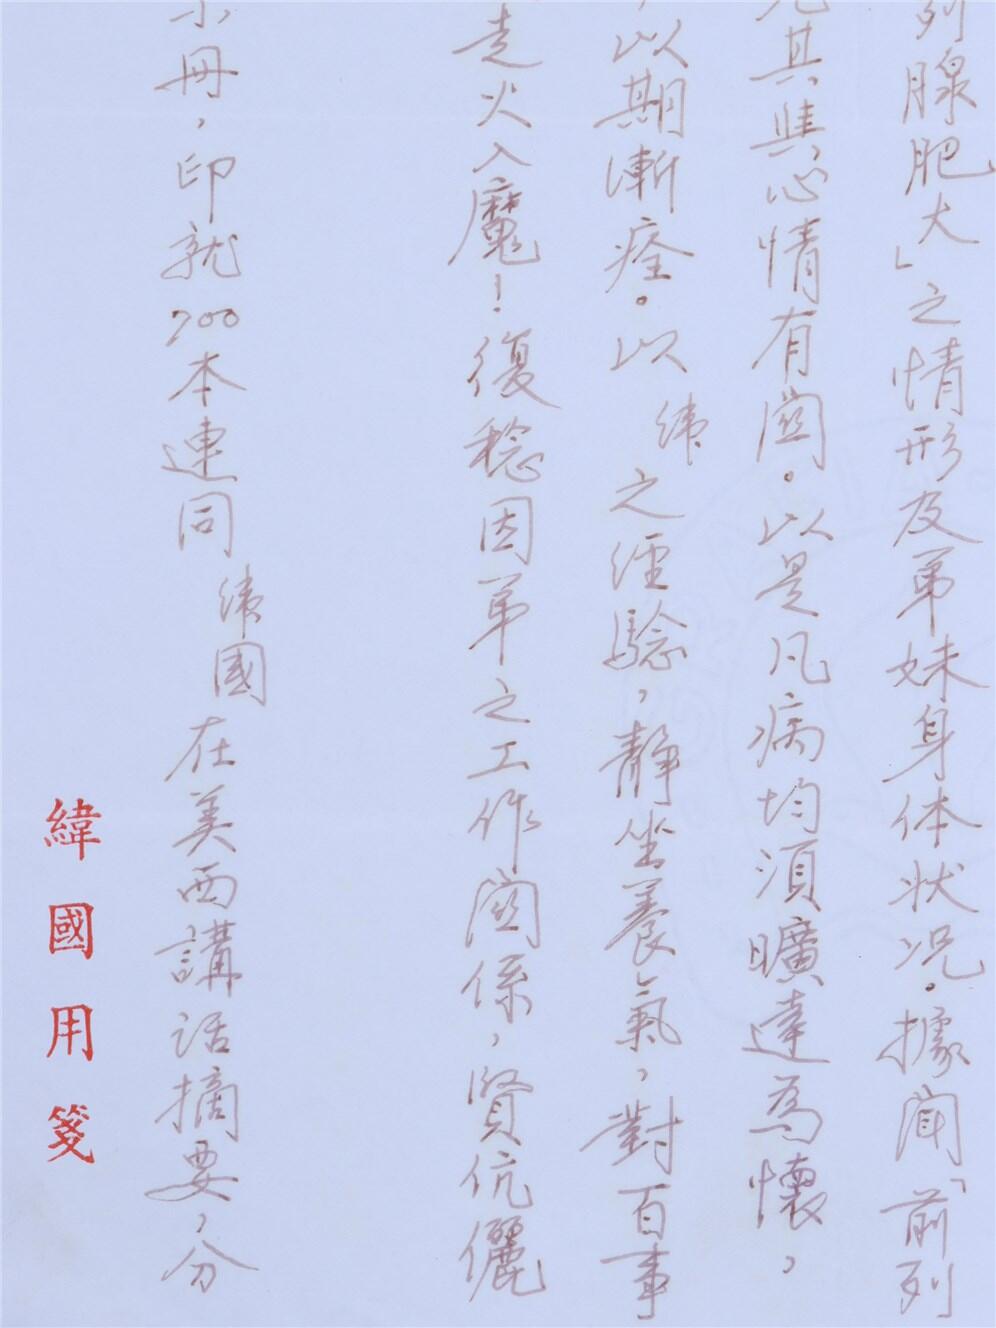 列腺肥大」之情形及弟妹身体狀況。據聞「前列
其與心情有関。以是凡病均須曠達為懷，
，以期漸痊。以緯之經驗，靜坐養氣，對百事
走火入魔！復稔因弟之工作関係，賢伉儷
小冊，印就700本連同緯國在美西講話摘要，分
緯國用箋